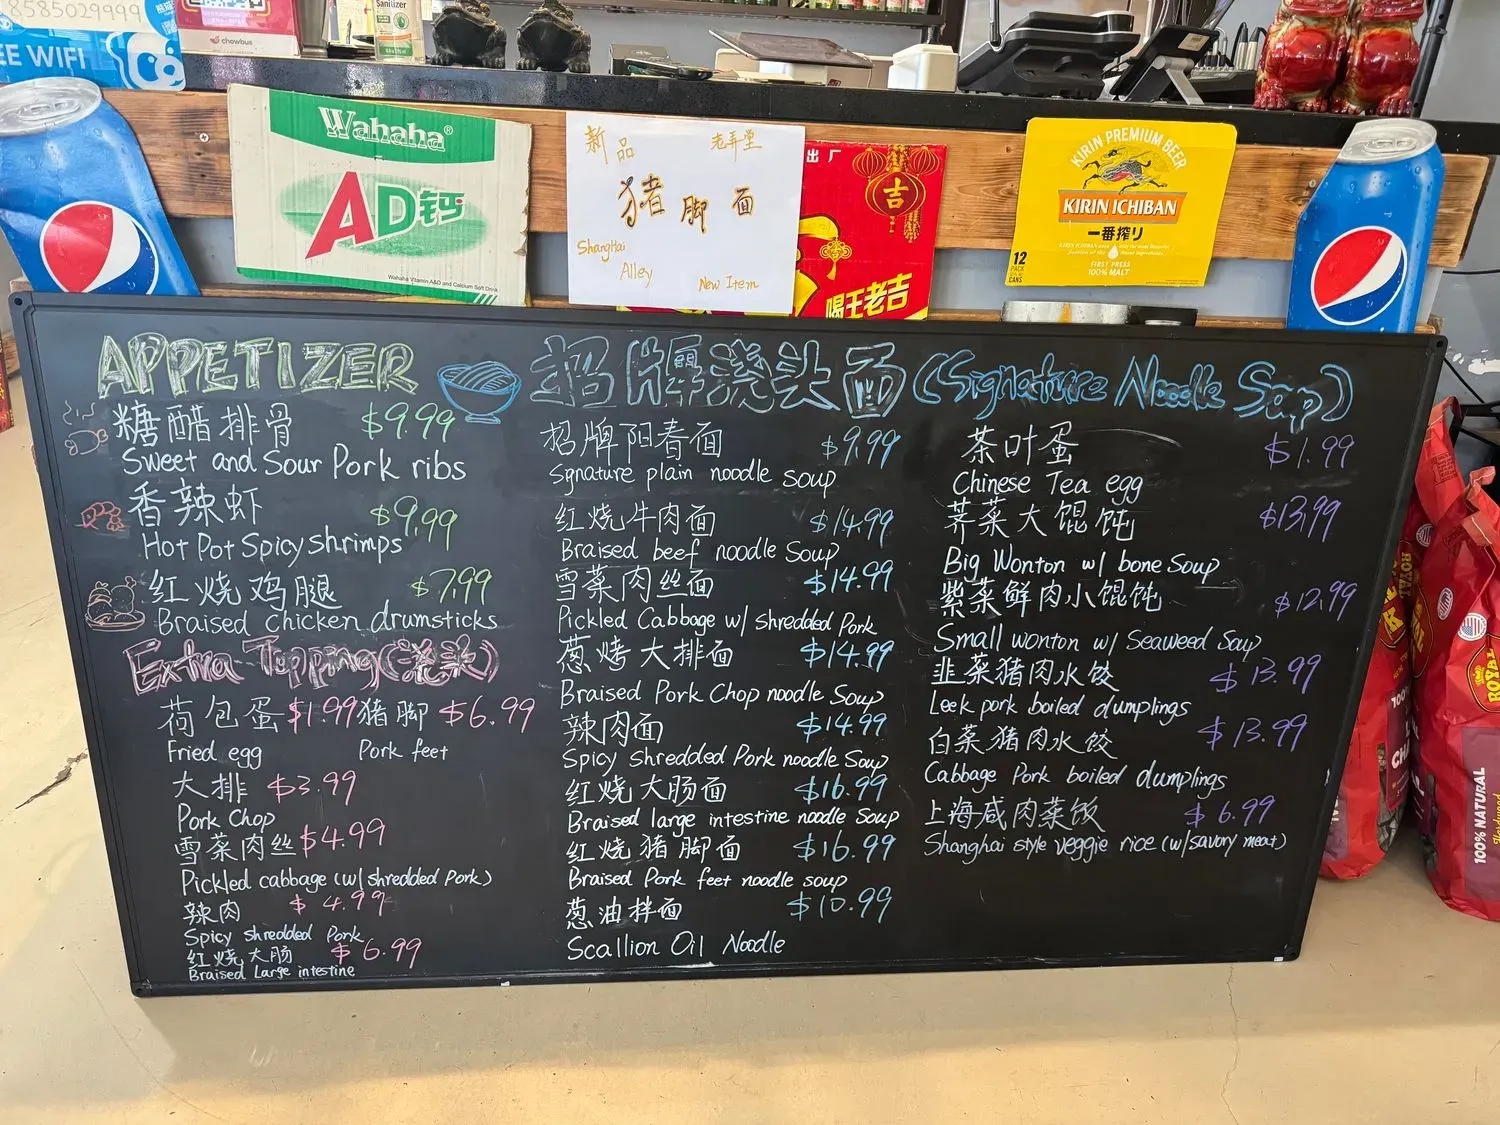 8585029999
EE WIFI
chowbus
Sanitizer
Wahaha®
AD钙
Wahaha Vitamin A&D and Calcium Soft Drink
新品
老弄堂
猪脚面
ShangHai
Alley
New Item
出厂
吉
喝王老吉
KIRIN PREMIUM BEER
KIRIN ICHIBAN
一番搾り
FIRST PRESS
100% MALT
12
PACK
CANS
APPETIZER
糖醋排骨 $9.99
Sweet and Sour Pork ribs
香辣虾 $9.99
Hot Pot Spicy shrimps
红烧鸡腿 $7.99
Braised chicken drumsticks
Extra Topping(浇头)
荷包蛋 $1.99 猪脚 $6.99
Fried egg Pork feet
大排 $3.99
Pork Chop
雪菜肉丝 $4.99
Pickled cabbage (w/ shredded Pork)
辣肉 $4.99
Spicy shredded Pork
红烧大肠 $6.99
Braised Large intestine
招牌浇头面 (Signature Noodle Soup)
招牌阳春面 $9.99
Sgnature plain noodle soup
红烧牛肉面 $14.99
Braised beef noodle Soup
雪菜肉丝面 $14.99
Pickled Cabbage w/ shredded Pork
葱烤大排面 $14.99
Braised Pork Chop noodle Soup
辣肉面 $14.99
Spicy shredded Pork noodle Soup
红烧大肠面 $16.99
Braised large intestine noodle Soup
红烧猪脚面 $16.99
Braised Pork feet noodle soup
葱油拌面 $10.99
Scallion Oil Noodle
茶叶蛋 $1.99
Chinese Tea egg
荠菜大馄饨 $13.99
Big Wonton w/ bone Soup
紫菜鲜肉小馄饨 $12.99
Small wonton w/ Seaweed Soup
韭菜猪肉水饺 $13.99
Leek pork boiled dumplings
白菜猪肉水饺 $13.99
Cabbage Pork boiled dumplings
上海咸肉菜饭 $6.99
Shanghai style veggie rice (w/savory meat)
ROYAL
100% NATURAL